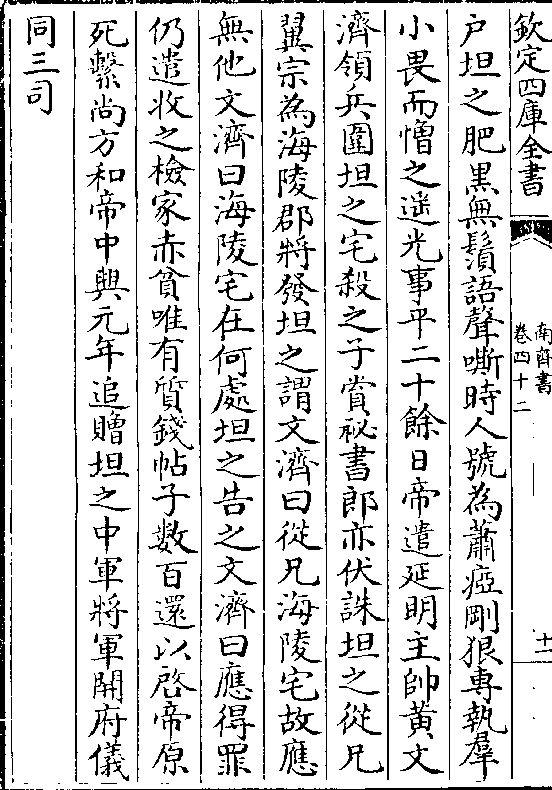 欽定四庫全書
南齊書
卷四十二
十一
户坦之肥黒無鬚語聲嘶時人號為蕭瘂剛狠專執羣
小畏而憎之遥光事平二十餘日帝遣延明主帥黄文
濟領兵圍坦之宅殺之子賞秘書郎亦伏誅坦之從兄
翼宗為海陵郡將發坦之謂文濟曰從兄海陵宅故應
無他文濟曰海陵宅在何處坦之告之文濟曰應得罪
仍遣收之檢家赤貧唯有質錢帖子數百還以啓帝原
死繫尚方和帝中興元年追贈坦之中軍將軍開府儀
同三司